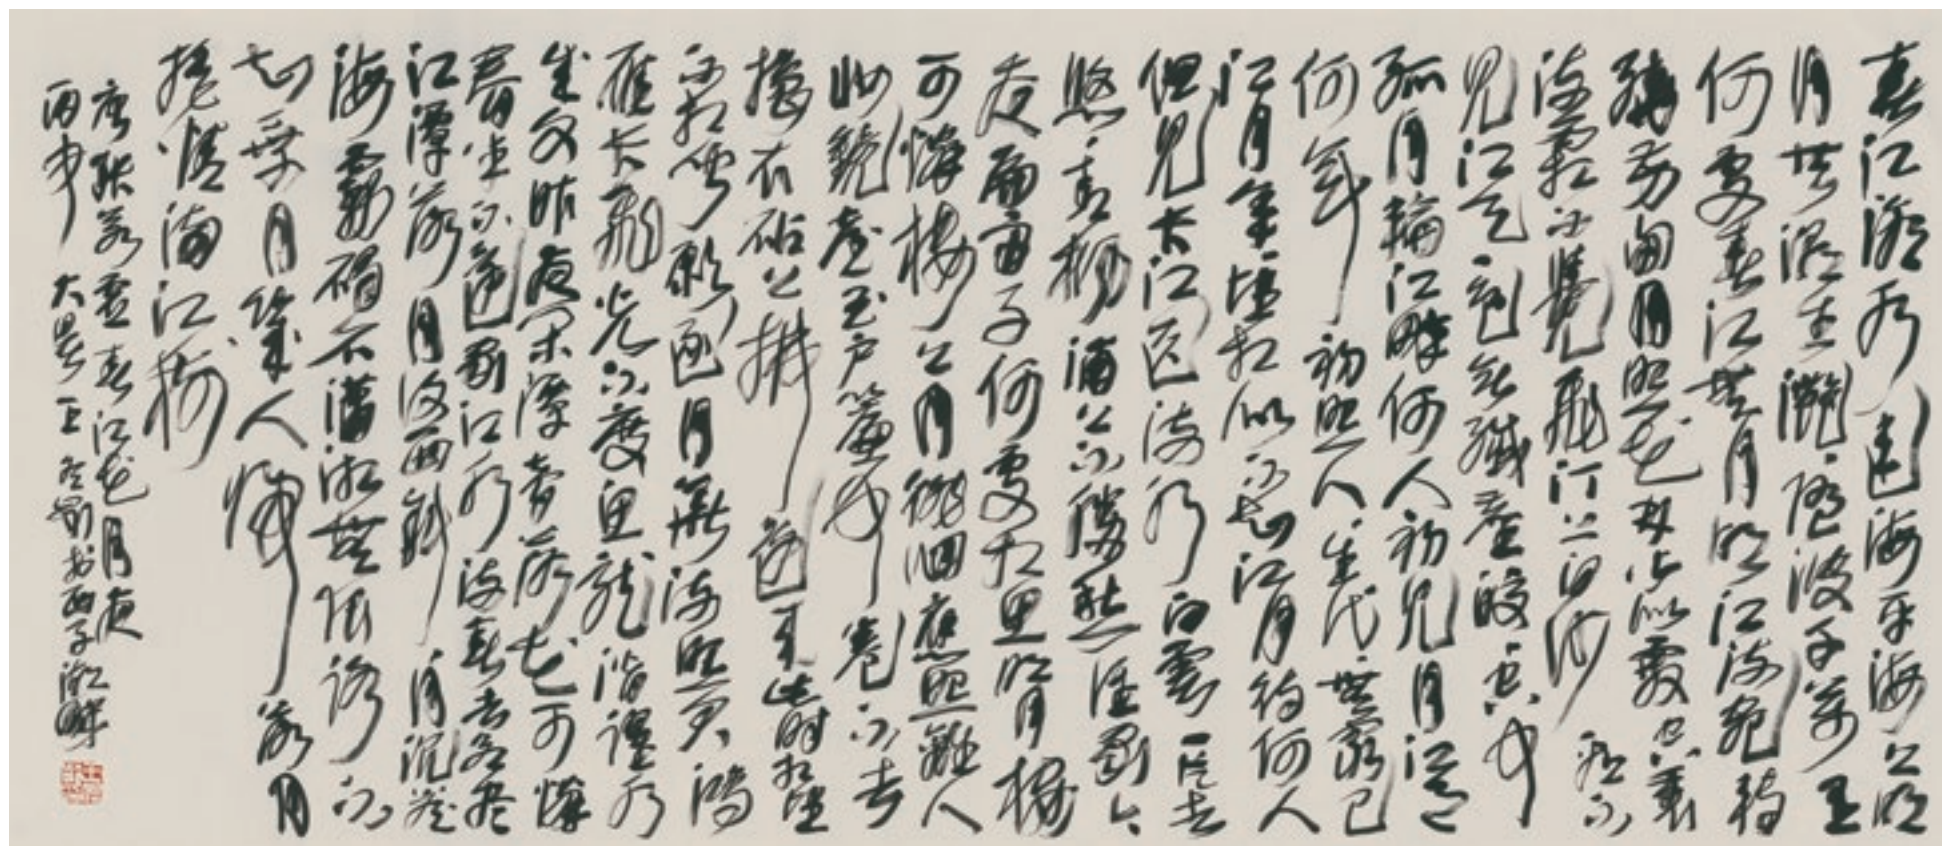 春江潮水連海平海上明
月共潮生灩灩隨波千萬里
何處春江無月明江流宛轉
繞芳甸月照花林皆似霰空裏
流霜不覺飛汀上白沙看不
見江天一色無纖塵皎皎空中
孤月輪江畔何人初見月江月
何年初照人人生代代無窮已
江月年年望相似不知江月待何人
但見長江送流水白雲一片去
悠悠青楓浦上不勝愁誰家今
夜扁舟子何處相思明月樓
可憐樓上月徘徊應照離人
妝鏡臺玉戶簾中卷不去
擣衣砧上拂還來此時相望
不相聞願逐月華流照君鴻
雁長飛光不度魚龍潛躍水
成文昨夜閑潭夢落花可憐
春半不還家江水流春去欲盡
江潭落月復西斜斜月沉沉藏
海霧碣石瀟湘無限路不
知乘月幾人歸落月
搖情滿江樹
唐張若虛春江花月夜
丙申大暑王冬齡书於西子湖畔